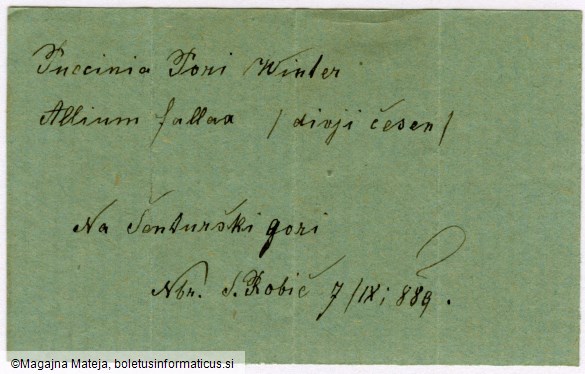 Puccinia Pori Winter
Allium fallax / divji česen /
Na Šenturški gori
Nbr. S. Robič 7/IX; 889.
©Magajna Mateja, boletusinformaticus.si